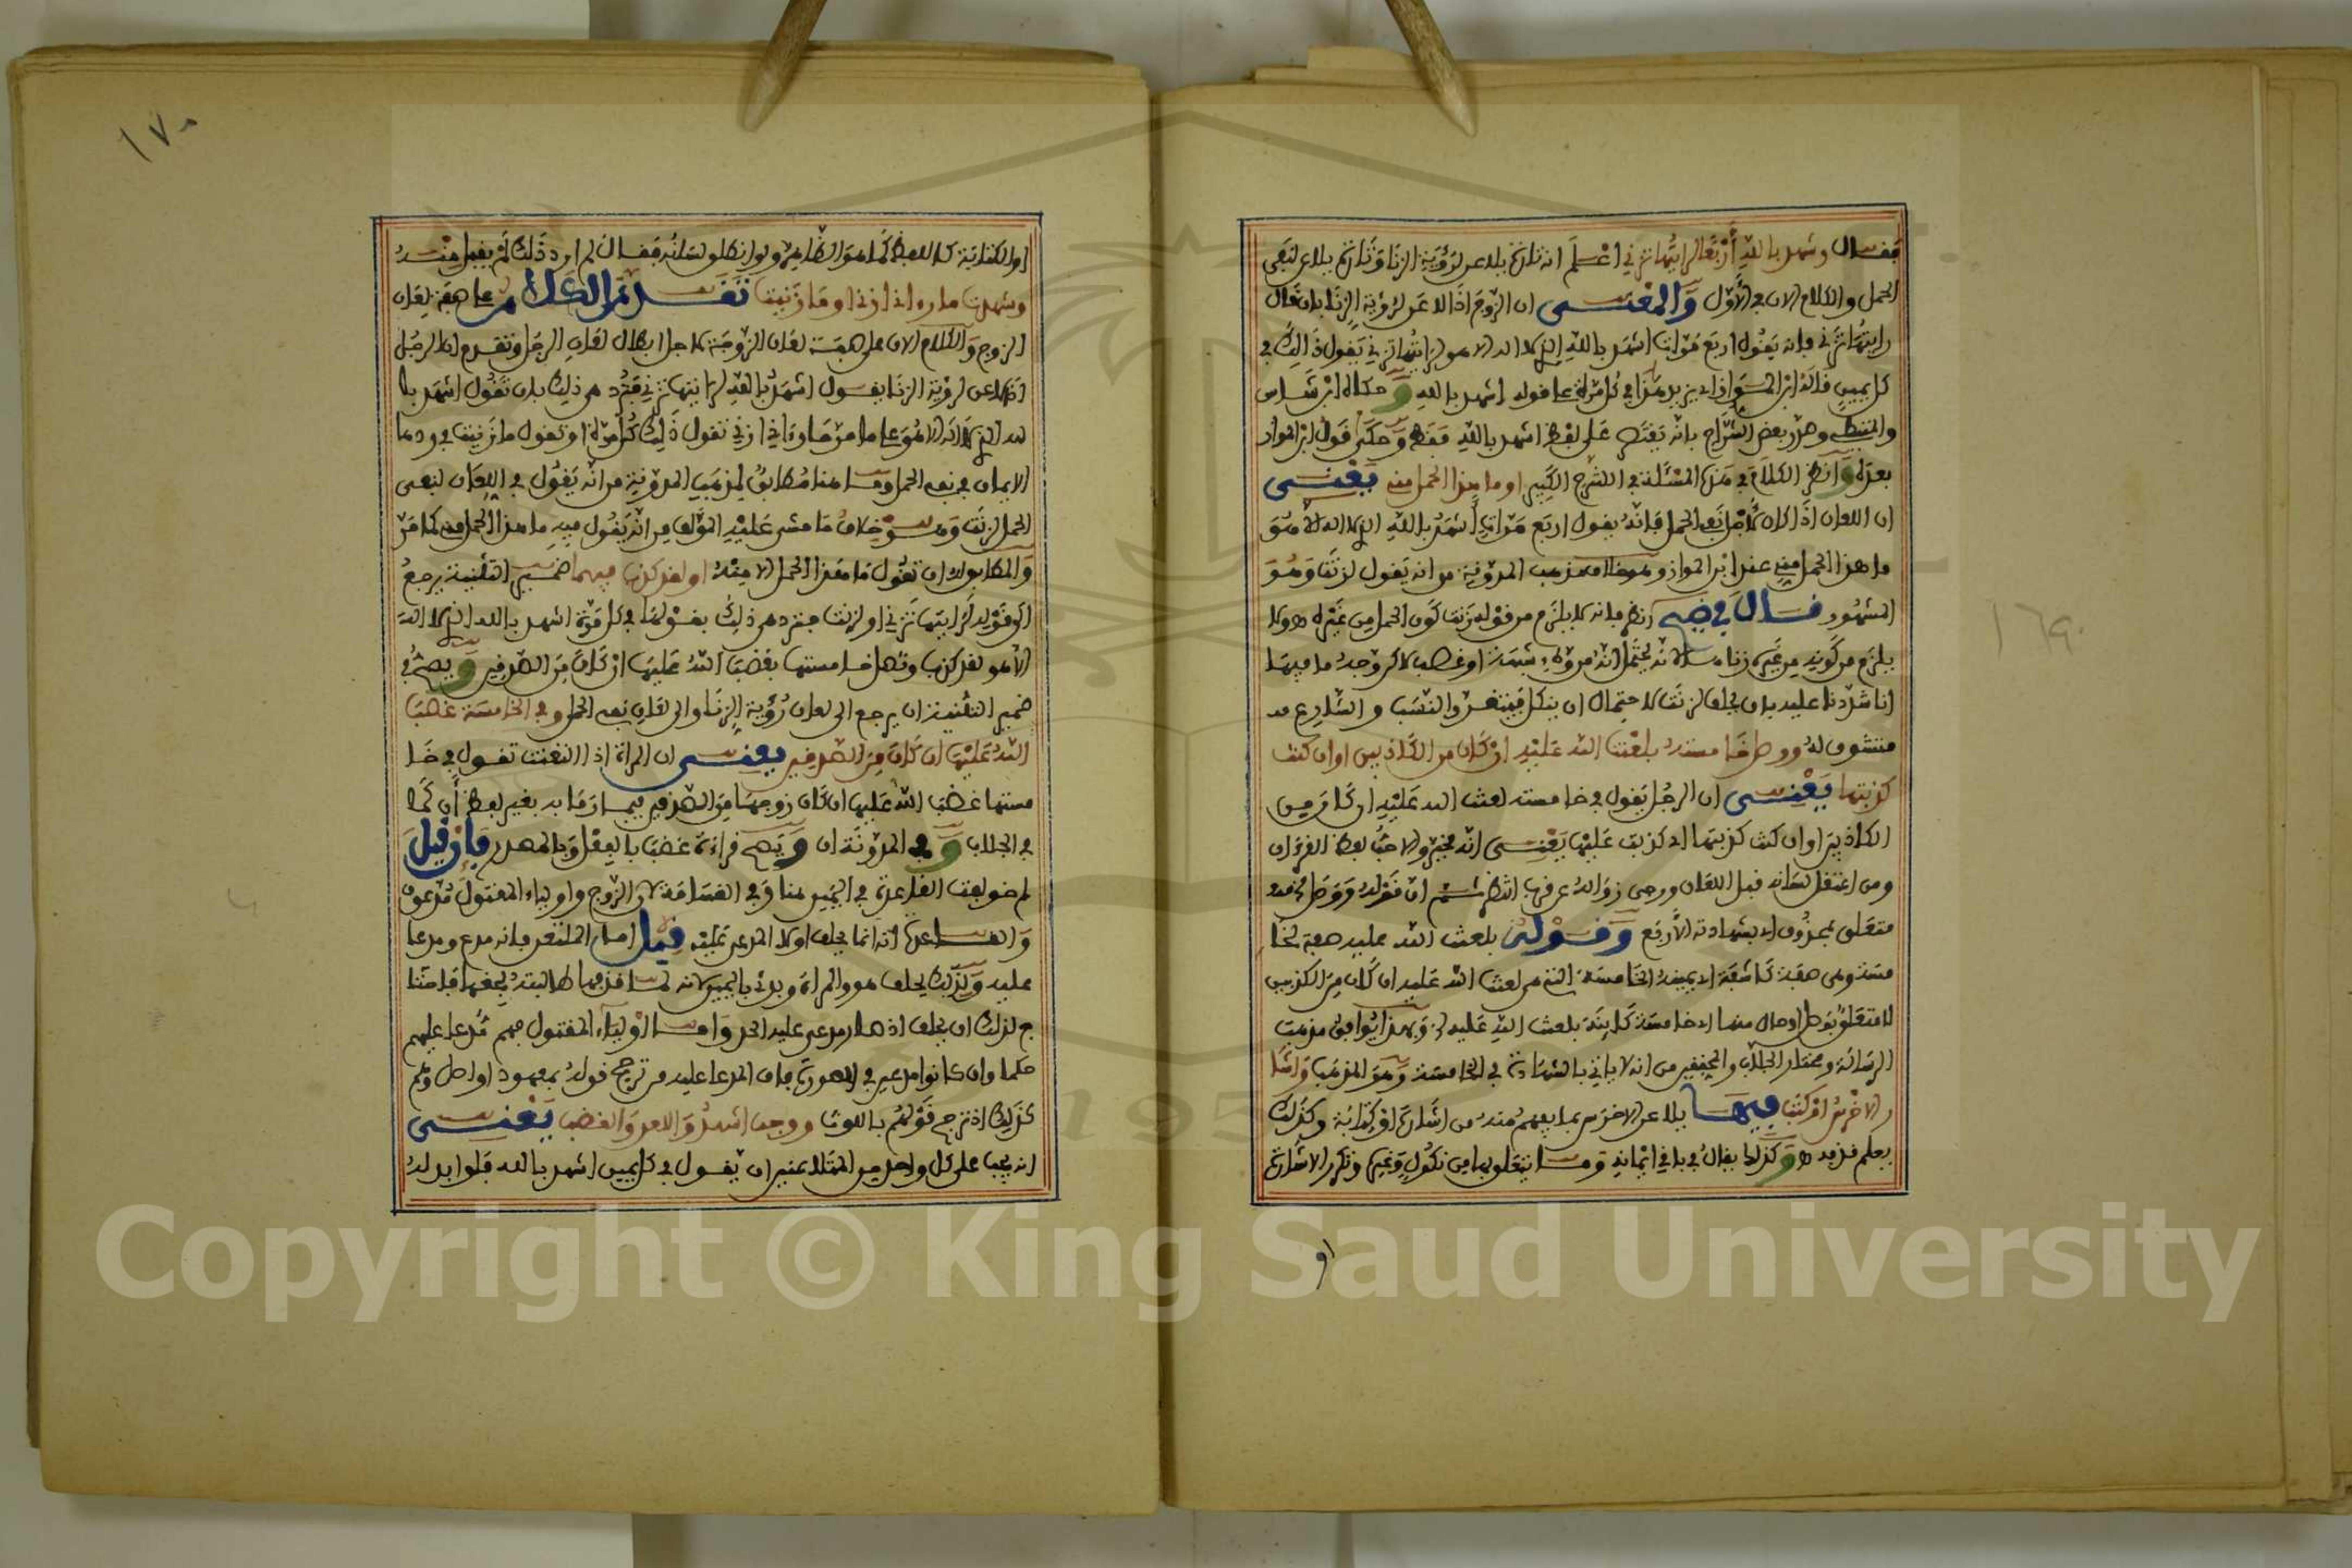 فقال وشهد بالله أربعا لرأيتها تزني اعلم انه تارة يلاعن لرؤية الزنا وتارة يلاعن لنفي
الحمل والكلام الان في الأول والمعنى ان الزوج اذا لاعن لرؤية الزنا بان قال
رايتها تزني فانه يقول اربع مرات اشهد بالله الذي لا اله الا هو لرايتها تزني يقول ذالك في
كل يمين قاله ابن المواز اي يزيد هذا في كل مرة على قوله اشهد بالله وحكاه ابن شاس
والمتيطي وهذر بعض الشراح بانه يقتصر على لفظ اشهد بالله فقط وحكى قول ابن المواز
بعده وانظر الكلام في هذه المسئلة في الشرح الكبير او ما هذا الحمل مني يعنى
ان اللعان اذا كان لاجل نفي الحمل فانه يقول اربع مرات اشهد بالله الذي لا اله الا هو
ما هذا الحمل مني عند ابن المواز ومذهب المدونة من انه يقول لزنت وهو
المشهور قال في ضيح انظر فانه لا يلزم من قوله زنت كون الحمل من غيره ولا
يلزم من كونه من غيره زنا لانه يحتمل انه من وطء شبهة او غصب لاكن وجه ما فيها
انا شددنا عليه بان يحلف لزنت لاحتمال ان ينكل فيتقرر النسب والشارع
متشوف له ووصل خامسته بلعنة الله عليه ان كان من الكاذبين او ان كنت
كذبتها يعنى ان الرجل يقول في خامسته لعنة الله عليه ان كان من
الكاذبين او ان كنت كذبتها اي كذبت عليها يعنى انه مخير والاحب لفظ القرءان
ومن اعتقل لسانه قبل اللعان ورجي زواله عن قرب انتظر ثم ان قوله ووصل خامسته
متعلق بمحذوف اي بشهادته الأربع وقوله بلعنة الله عليه صفة لخا
مسته وهي صفة كاشفة اي يمينه الخامسة التي هي لعنة الله عليه ان كان من الكذبين
لا متعلق بوصل او حال منها اي خامسة كاينة بلعنة الله عليه وبهذا يوافق مذهب
الرسالة ومختار الجلاب والمحققين من انه لا ياتي بالشهادة في الخامسة وهو المذهب وأشا
ر الاخرس او كتب فيها يلاعن الاخرس بما يفهم منه من اشارة او كتابة وكذلك
يعلم قذفه وكذلك يقال في باقي ايمانه وما يتعلق بها من نكول وغيره وتكرر الاشارة
او
او الكتابة كاللفظ كما هو الظاهر ولو انطلق لسانه فقال لم ارد ذلك لم يقبل منه
وشهدت ما رءاني ازني او ما زنيت تقدم الكلام على صفة لعان
الزوج والكلام الان على صفة لعان الزوجة لاجل ابطال لعان الرجل وتقدم ان الرجل
اذا لاعن لرؤية الزنا يقول اشهد بالله لرايتها تزني فترد هي ذلك بان تقول اشهد با
لله الذي لا اله الا هو على ما مر ما رءاني ازني تقول ذلك كل مرة او تقول ما زنيت في ردها
الايمان في نفي الحمل وما هنا مطابق لمذهب المدونة من انه يقول في اللعان لنفي
الحمل لزنت وهو خلاف ما مشى عليه المؤلف من انه يقول فيه ما هذا الحمل مني كما مر
والمطابق له ان تقول ما هذا الحمل الا منه او لقد كذب فيهما ضمير التثنية يرجع
الى قوله لرايتها تزني او لزنت فترد هي ذلك بقولها في كل مرة اشهد بالله الذي لا اله
الا هو لقد كذب وتصل خامستها بغضب الله عليها ان كان من الصدقين ويصح في
ضمير التثنية ان يرجع الى لعان رؤية الزنا والى لعان نفي الحمل وفي الخامسة غضب
الله عليها ان كان من الصدقين يعنى ان المراة اذا التعنت تقول في خا
مستها غضب الله عليها ان كان زوجها من الصدقين فيما رماها به بغير لفظ أن كما
في الجلاب وفي المدونة ان ويصح قراءة غضب بالفعل وبالمصدر فان قيل
لم خولفت القاعدة في اليمين هنا وفي القسامة لان الزوج واولياء المقتول مدعون
والقاعدة انه انما يحلف اولا المدعى عليه قيل اما الملتعن فانه مدع ومدعا
عليه وكذلك يحلف هو والمراة وبدئ باليمين لانه لما قذفها طالبته بحقها فاحتا
ج لذلك ان يحلف اذ صار مدعى عليه الحد واما اولياء المقتول فهم مدعا عليهم
حكما وان كانوا مدعين في الصورة فان المدعا عليه من ترجح قوله بمعهود او اصل وهم
كذلك اذ ترجح قولهم باللوث ووجب اشهد واللعن والغضب يعنى
انه يجب على كل واحد من المتلاعنين ان يقول في كل يمين اشهد بالله فلو ابدله
١٧٠
١٦٩
Copyright © King Saud University